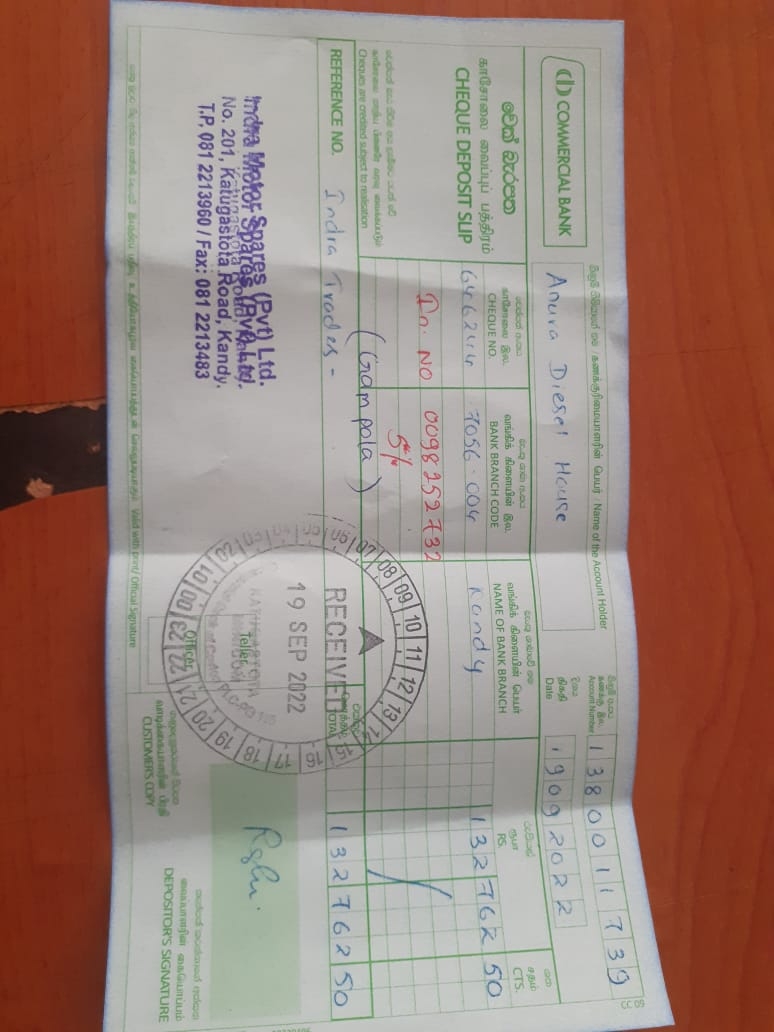 COMMERCIAL BANK
ගිණුම් හිමියාගේ නම / கணக்குரிமையாளரின் பெயர் / Name of the Account Holder
Anura Diesel House
ගිණුම් අංකය
கணக்கு இல.
Account Number
1380011739
දිනය
திகதி
Date
19092022
චෙක් බැරපත
காசோலை வைப்புப் பத்திரம்
CHEQUE DEPOSIT SLIP
චෙක්පත් අංකය
காசோலை இல.
CHEQUE NO.
BANK BRANCH CODE
NAME OF BANK BRANCH
රුපියල්
ரூபா
RS.
ශත
சதம்
CTS.
646244
7056-004
Kandy
132762 50
In: NO 0098252732
5%
Cheques are credited subject to realisation
(Gampola)
REFERENCE NO.
Indra Trades -
TOTAL
132762 50
Indra Motor Spares (Pvt) Ltd.
No. 201, Katugastota Road, Kandy.
T.P, 081 2213960 / Fax: 081 2213483
RECEIVED
19 SEP 2022
00 01 02 03 04 05 06 07 08 09 10 11 12 13 14 15 16 17 18 19 20 21 22 23
Teller
Officer
CUSTOMER'S COPY
DEPOSITOR'S SIGNATURE
Valid with print/ Official Signature
CC 09